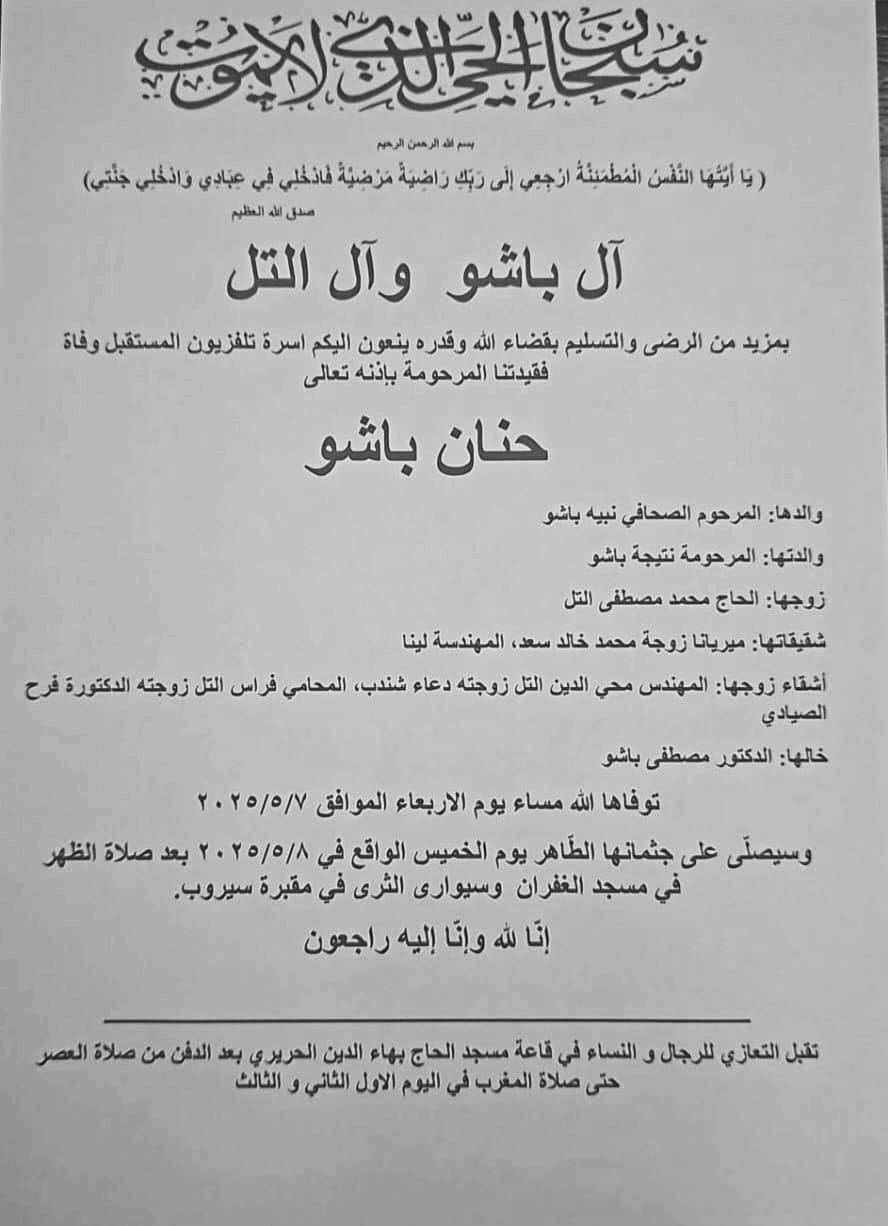 سبحان الحي الذي لا يموت
بسم الله الرحمن الرحيم
( يَا أَيَّتُهَا النَّفْسُ الْمُطْمَئِنَّةُ ارْجِعِي إِلَى رَبِّكِ رَاضِيَةً مَرْضِيَّةً فَادْخُلِي فِي عِبَادِي وَادْخُلِي جَنَّتِي)
صدق الله العظيم
آل باشو وآل التل
بمزيد من الرضى والتسليم بقضاء الله وقدره ينعون اليكم اسرة تلفزيون المستقبل وفاة
فقيدتنا المرحومة بإذنه تعالى
حنان باشو
والدها: المرحوم الصحافي نبيه باشو
والدتها: المرحومة نتيجة باشو
زوجها: الحاج محمد مصطفى التل
شقيقاتها: ميريانا زوجة محمد خالد سعد، المهندسة لينا
أشقاء زوجها: المهندس محي الدين التل زوجته دعاء شندب، المحامي فراس التل زوجته الدكتورة فرح
الصيادي
خالها: الدكتور مصطفى باشو
توفاها الله مساء يوم الاربعاء الموافق ٢٠٢٥/٥/٧
وسيصلّى على جثمانها الطّاهر يوم الخميس الواقع في ٢٠٢٥/٥/٨ بعد صلاة الظهر
في مسجد الغفران وسيوارى الثرى في مقبرة سيروب.
إنّا لله وإنّا إليه راجعون
تقبل التعازي للرجال و النساء في قاعة مسجد الحاج بهاء الدين الحريري بعد الدفن من صلاة العصر
حتى صلاة المغرب في اليوم الاول الثاني و الثالث